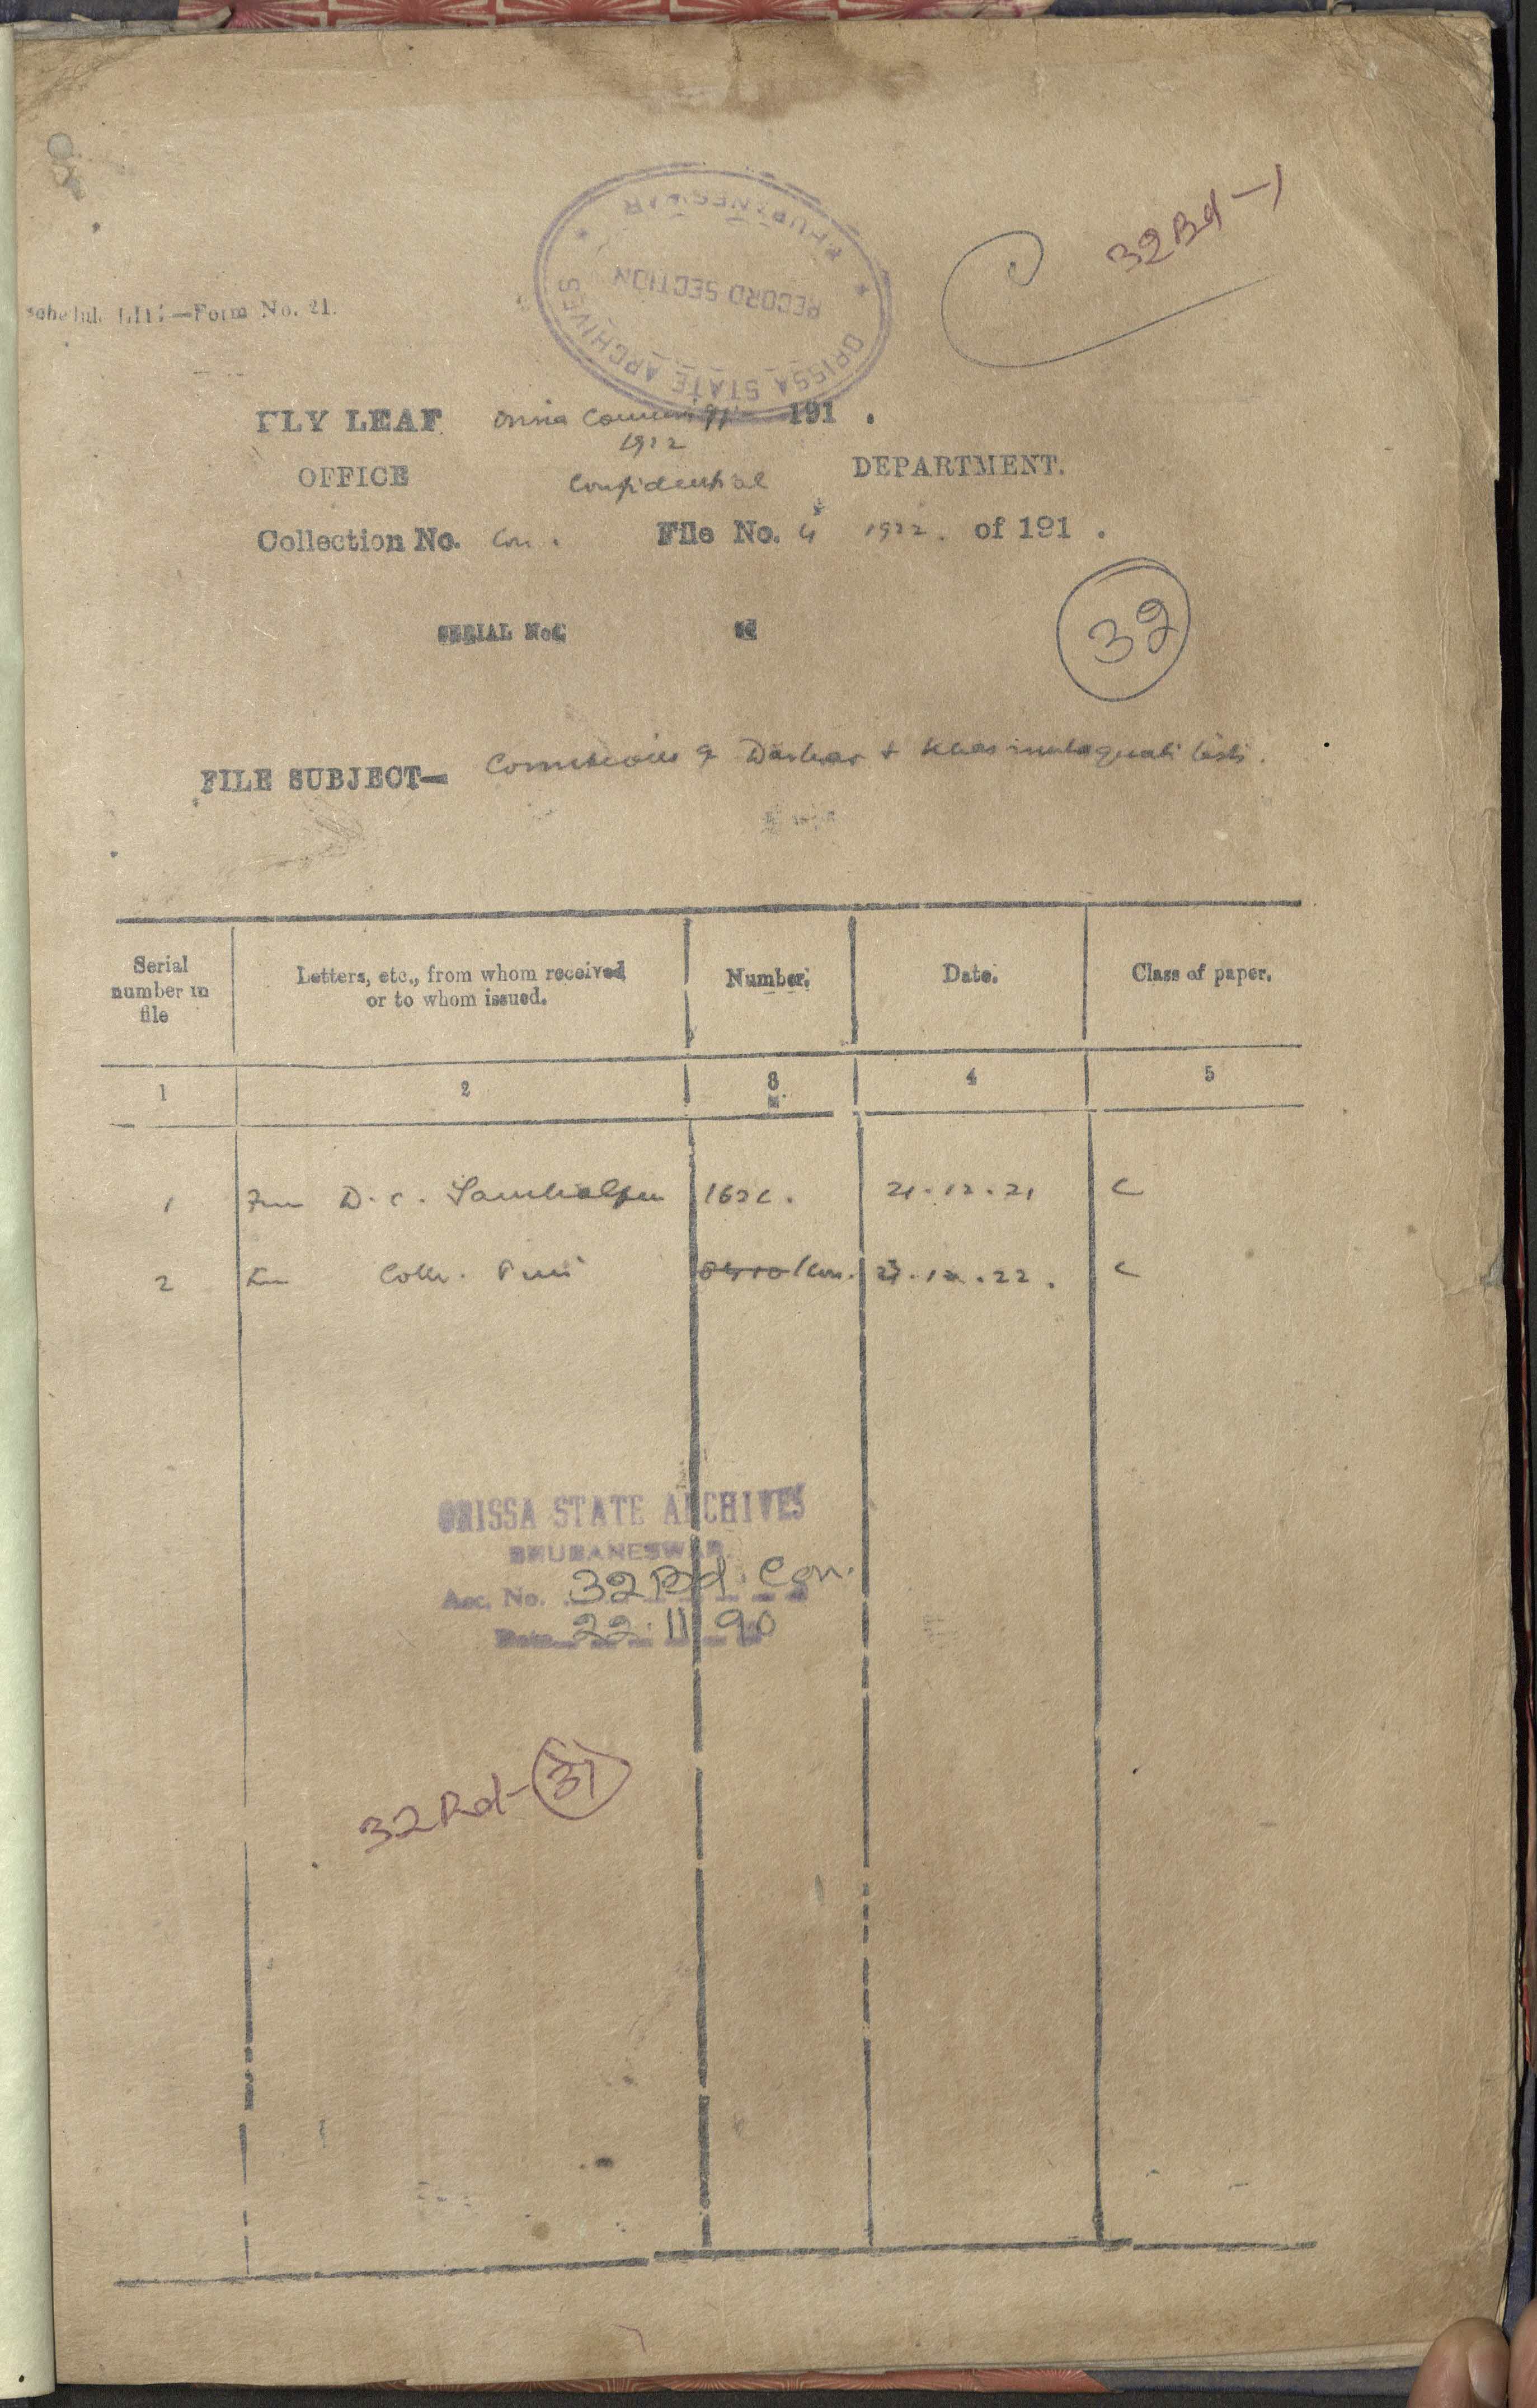 ORISSA STATE ARCHIVES
BHUBANESWAR
RECORD SECTION
32Bd-1
Schedule LIII—Form No. 21.
FLY LEAF Orissa 191 .
1922
OFFICE Confidential DEPARTMENT.
Collection No. Con. File No. 4 1922. of 191 .
SERIAL No.
32
FILE SUBJECT— Corrections of Darbar & Khas mulaquati lists.
Serial number in file
Letters, etc., from whom received or to whom issued.
Number.
Date.
Class of paper.
1 2 3 4 5
1 From D.C. Sambalpur 162C. 21.12.21 C
2 Collr. Puri /Con. C
ORISSA STATE ARCHIVES
BHUBANESWAR
Acc. No. 32Bd. Con.
Date 22.11.90
32Bd-31